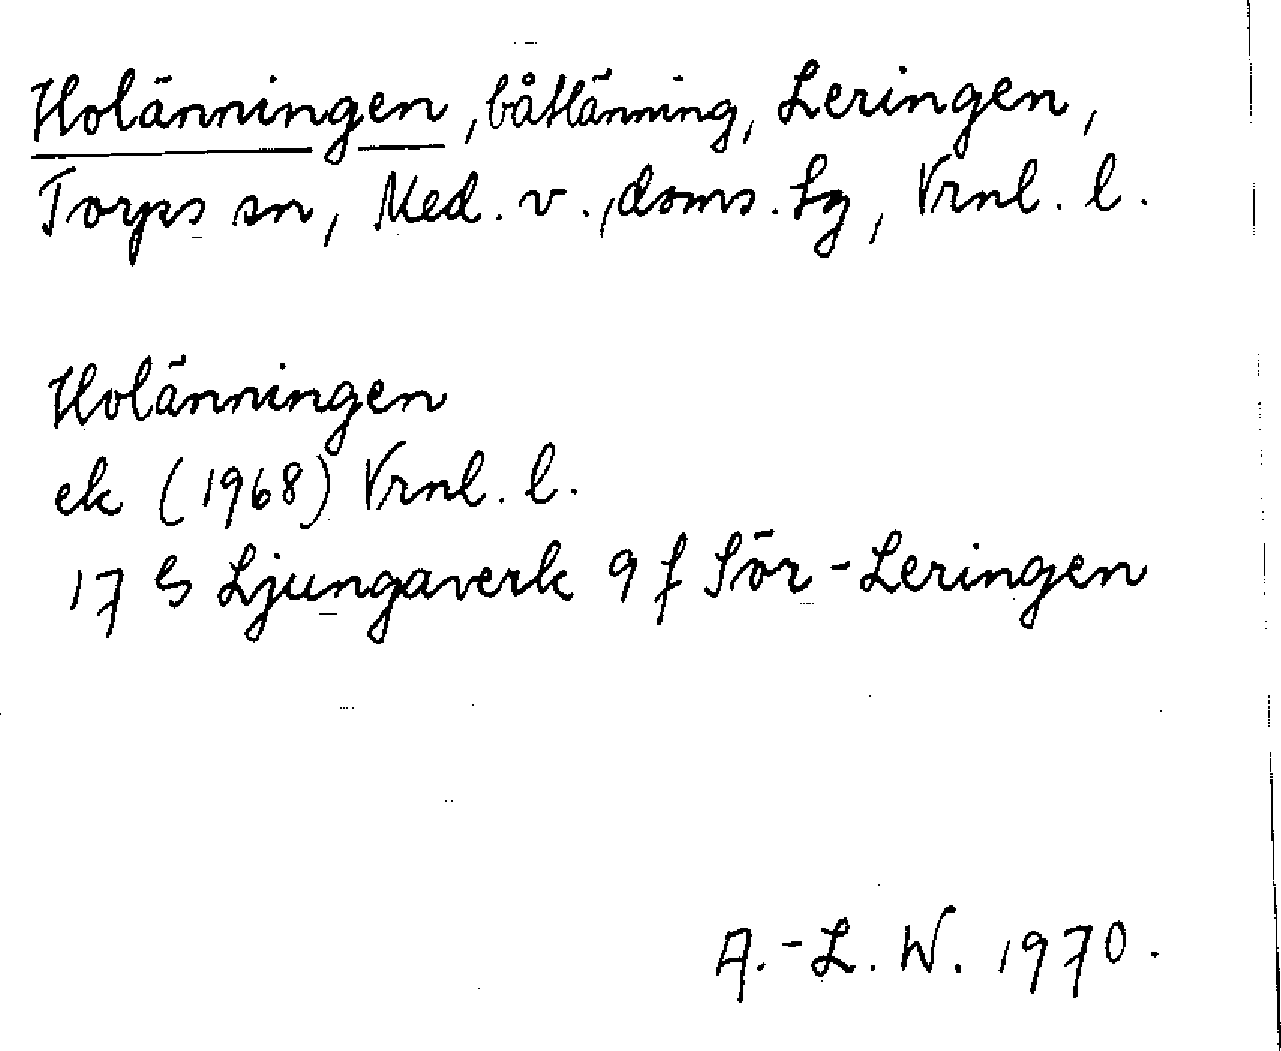 Holänningen, båtlänning, Leringen,
Torps sn, Med. v., doms. Lg, Vrnl. l.
Holänningen
ek (1968) Vrnl. l.
17 G Ljungaverk 9 f Sör-Leringen
A.-L. W. 1970.